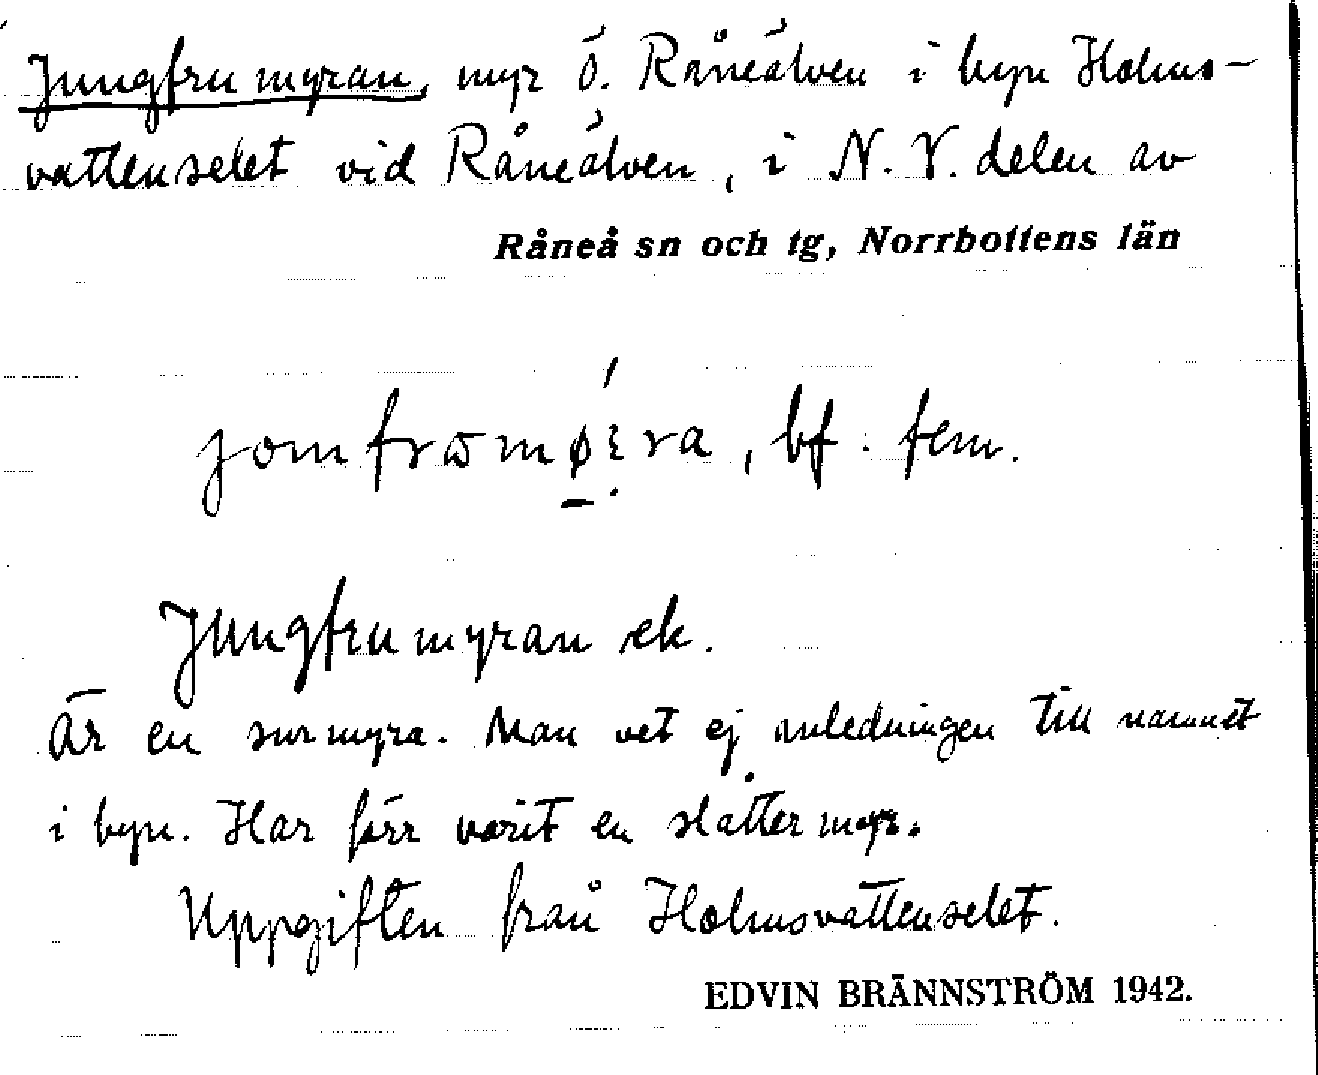 Jungfrumyran, myr ö. Råneälven i byn Holms-
vattenselet vid Råneälven, i N.V. delen av
Råneå sn och tg, Norrbottens län
bf. fem.
Jungfrumyran ek.
Är en surmyra. Man vet ej anledningen till namnet
i byn. Har förr varit en slåttermyr.
Uppgiften från Holmsvattenselet.
EDVIN BRÄNNSTRÖM 1942.